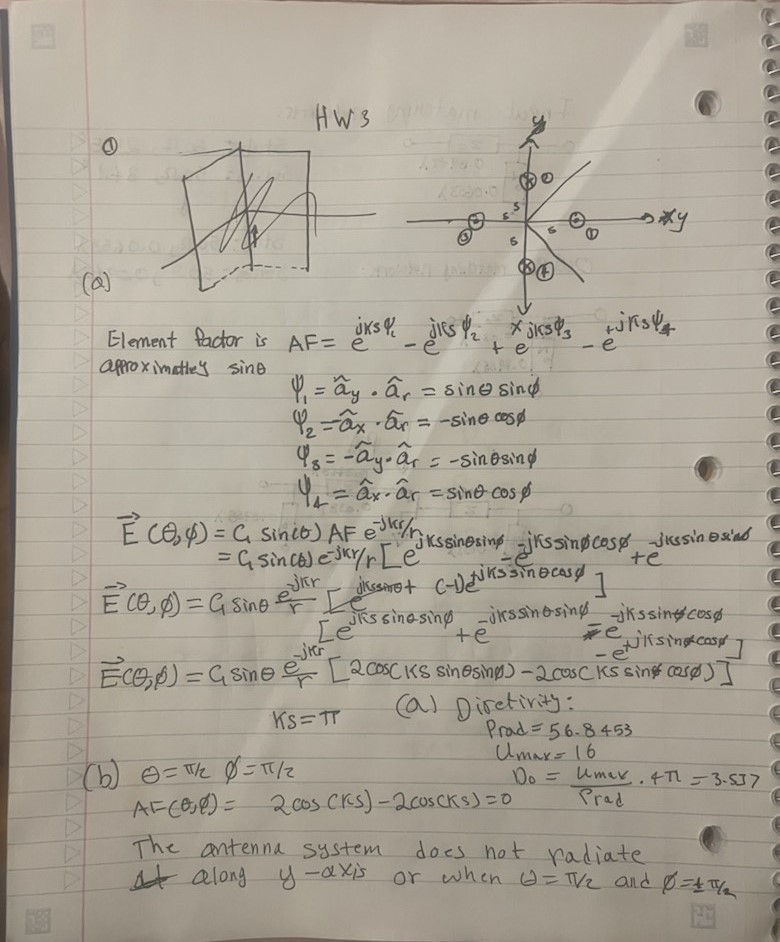 HW3
①
y
②
s s
③ s s ① xy
④
x
(a)
Element factor is AF = e^jksψ₁ - e^jksψ₂ + e^jksψ₃ - e^+jksψ₄
approximatley sinθ
ψ₁ = â_y · â_r = sinθ sinφ
ψ₂ = -â_x · â_r = -sinθ cosφ
ψ₃ = -â_y · â_r = -sinθ sinφ
ψ₄ = â_x · â_r = sinθ cosφ
E⃗(θ,φ) = C₁ sin(θ) AF e^-jkr/r
= C₁ sin(θ) e^-jkr/r [e^jkssinθsinφ - e^-jkssinφcosφ + e^-jkssinθsinφ
+ (-1)e^+jkssinθcosφ]
E⃗(θ,φ) = C₁ sinθ e^-jkr/r [e^jkssinθsinφ + e^-jkssinθsinφ - e^-jkssinφcosφ
- e^+jksinφcosφ]
E⃗(θ,φ) = C₁ sinθ e^-jkr/r [2cos(ks sinθsinφ) - 2cos(ks sinφ cosφ)]
ks = π (a) Diretivity:
Prad = 56.8453
Umax = 16
D₀ = Umax/Prad · 4π = 3.537
(b) θ = π/2 φ = π/2
AF(θ,φ) = 2cos(ks) - 2cos(ks) = 0
The antenna system does not radiate
along y-axis or when θ = π/2 and φ = ±π/2